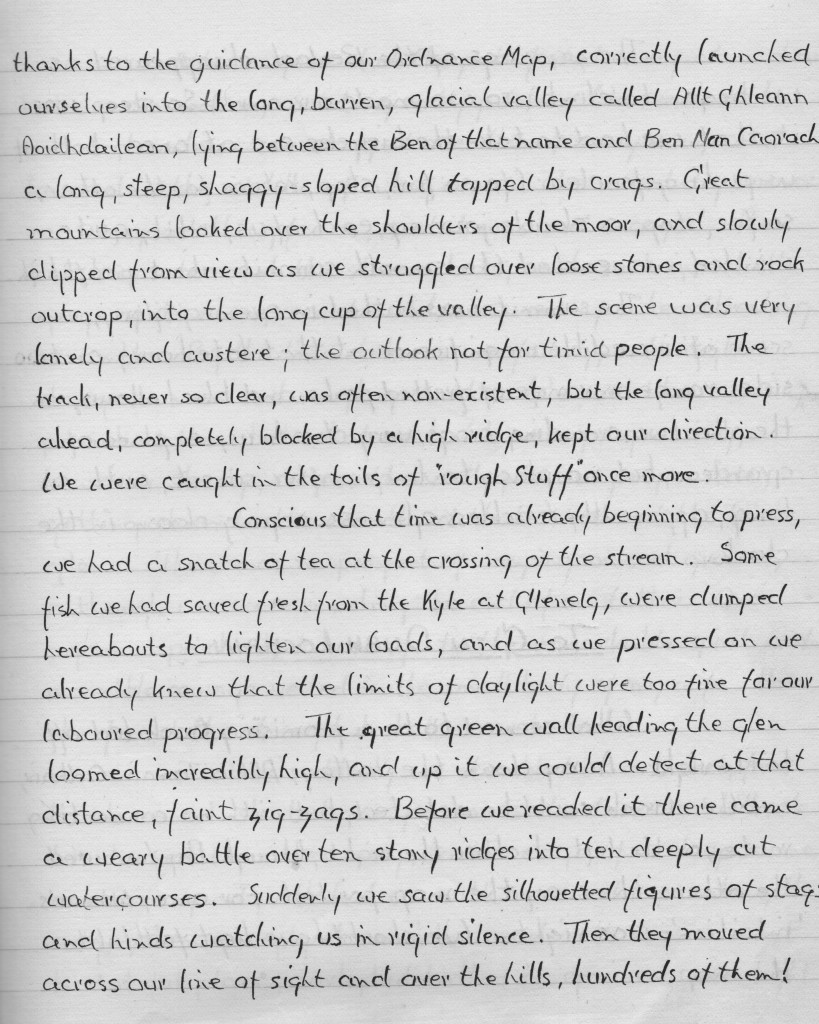 thanks to the guidance of our Ordnance Map, correctly launched
ourselves into the long, barren, glacial valley called Allt Ghleann
Aoidhdailean, lying between the Ben of that name and Ben Nan Caorach
a long, steep, shaggy-sloped hill topped by crags. Great
mountains looked over the shoulders of the moor, and slowly
dipped from view as we struggled over loose stones and rock
outcrop, into the long cup of the valley. The scene was very
lonely and austere; the outlook not for timid people. The
track, never so clear, was often non-existent, but the long valley
ahead, completely blocked by a high ridge, kept our direction.
We were caught in the toils of "rough stuff" once more.
Conscious that time was already beginning to press,
we had a snatch of tea at the crossing of the stream. Some
fish we had saved fresh from the Kyle at Glenelg, were dumped
hereabouts to lighten our loads, and as we pressed on we
already knew that the limits of daylight were too fine for our
laboured progress. The great green wall heading the glen
loomed incredibly high, and up it we could detect at that
distance, faint zig-zags. Before we reached it there came
a weary battle over ten stony ridges into ten deeply cut
watercourses. Suddenly we saw the silhouetted figures of stags
and hinds watching us in rigid silence. Then they moved
across our line of sight and over the hills, hundreds of them!